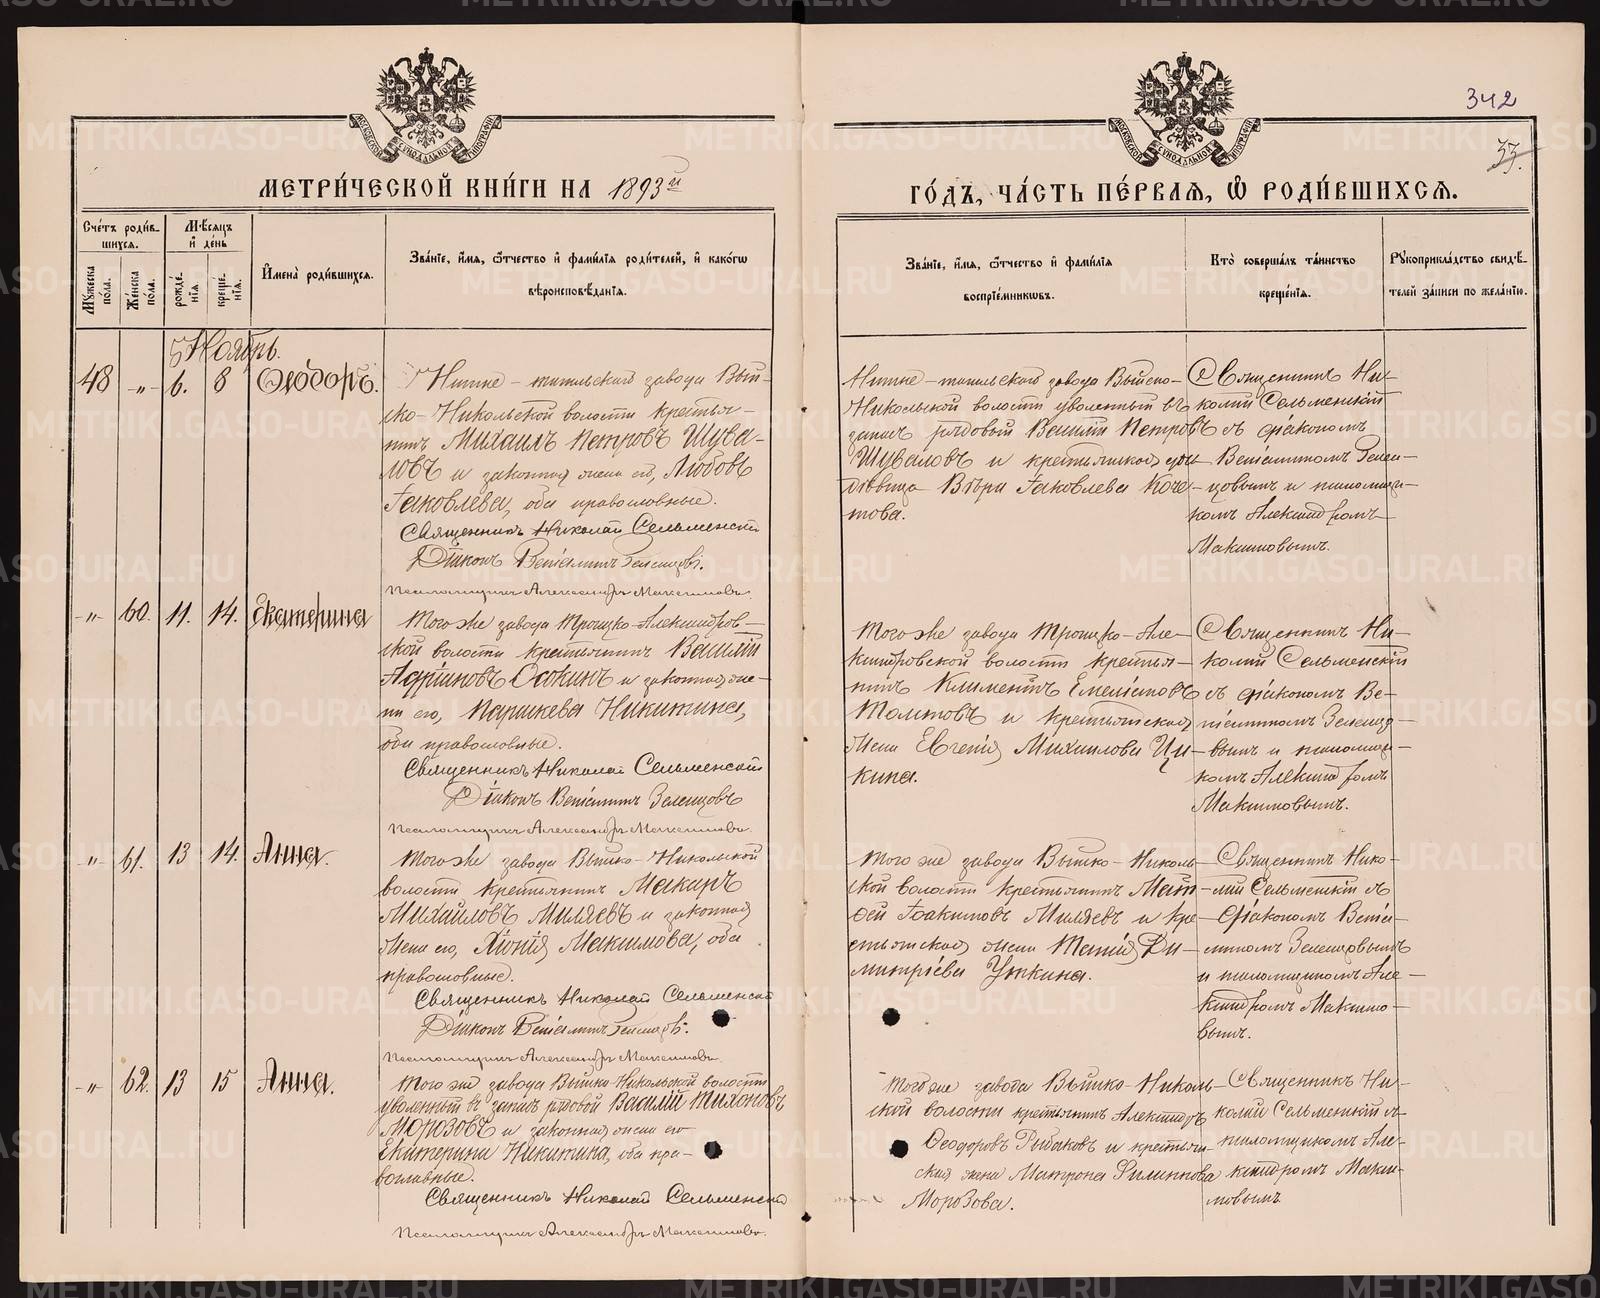 342
33.
МЕТРИ́ЧЕСКОЙ КНИ́ГИ НА 1893й
ГО́ДЪ, ЧА́СТЬ ПЕ́РВАѦ, Ѡ РОДИ́ВШИХСѦ.
Сче́тъ роди́в-
шихсѧ.
Мꙋжеска пола.
Же́нска пола.
Мѣ́сѧцъ и҆ де́нь
рожде́-нїѧ.
креще́-нїѧ.
И҆мена̀ роди́вшихсѧ.
Зва́нїе, и҆́мѧ, ѻ҆́тчество и҆ фами́лїѧ роди́телей, и҆ како́гѡ
вѣроисповѣ́данїѧ.
Зва́нїе, и҆́мѧ, ѻ҆́тчество и҆ фами́лїѧ
воспрїе́мникѡвъ.
Кто̀ соверша́лъ та́инство
креще́нїѧ.
Рꙋкоприкла́дство свидѣ́-
телей за́писи по жела́нїю.
Ноябрь.
48 -„- 6. 8 Ѳеодоръ.
Нижне-тагильскаго завода Вый-
ско-Никольской волости крестья-
нинъ Михаилъ Петровъ Шува-
ловъ и законная жена его, Любовь
Іаковлева, оба православные.
Священникъ Николай Сельменскій
Діаконъ Веніаминъ Зеленцовъ.
Псаломщикъ Александръ Максимовъ.
Нижне-тагильскаго завода Выйско-
Никольской волости уволенный въ
запасъ рядовый Василій Петровъ
Шуваловъ и крестьянская
дѣвица Вѣра Іаковлева Коче-
това.
Священникъ Ни-
колай Сельменскій
съ діакономъ
Веніаминомъ Зелен-
цовымъ и псаломщи-
комъ Александромъ
Максимовымъ.
-„- 60. 11. 14. Екатерина
Того же завода Троицко-Александров-
ской волости крестьянинъ Василій
Адріановъ Осокинъ и законная же-
на его, Параскева Никитина,
оба православные.
Священникъ Николай Сельменскій
Діаконъ Веніаминъ Зеленцовъ
Псаломщикъ Александръ Максимовъ.
Того же завода Троицко-Але-
ксандровской волости крестья-
нинъ Климентъ Емеліановъ
и крестьянская
жена Евгенія Михаилова Ци-
кина.
Священникъ Ни-
колай Сельменскій
съ діакономъ Ве-
ніаминомъ Зеленцо-
вымъ и псаломщи-
комъ Александромъ
Максимовымъ.
-„- 61. 13 14. Анна.
Того же завода Выйско-Никольской
волости крестьянинъ Макаръ
Михайловъ Миляевъ и законная
жена его, Хіонія Максимова, оба
православные.
Священникъ Николай Сельменскій
Діаконъ Веніаминъ Зеленцовъ.
Псаломщикъ Александръ Максимовъ.
Того же завода Выйско-Николь-
ской волости крестьянинъ Мат-
ѳей Іоакимовъ Миляевъ и кре-
стьянская жена Татія Ди-
митріева Уткина.
Священникъ Нико-
лай Сельменскій съ
діакономъ Веніа-
миномъ Зеленцовымъ
и псаломщикомъ Але-
ксандромъ Максимо-
вымъ.
-„- 62. 13 15 Анна.
Того же завода Выйско-Никольской волости
уволенный въ запасъ рядовой Василій Тихоновъ
Морозовъ и законная жена его
Екатерина Никитина, оба пра-
вославные.
Священникъ Николай Сельменскій
Псаломщикъ Александръ Максимовъ.
Того же завода Выйско-Николь-
ской волости крестьянинъ Александръ
Ѳеодоровъ Рыбаковъ и крестьян-
ская жена Матрона Филиппова
Морозова.
Священникъ Ни-
колай Сельменскій съ
псаломщикомъ Але-
ксандромъ Макси-
мовымъ